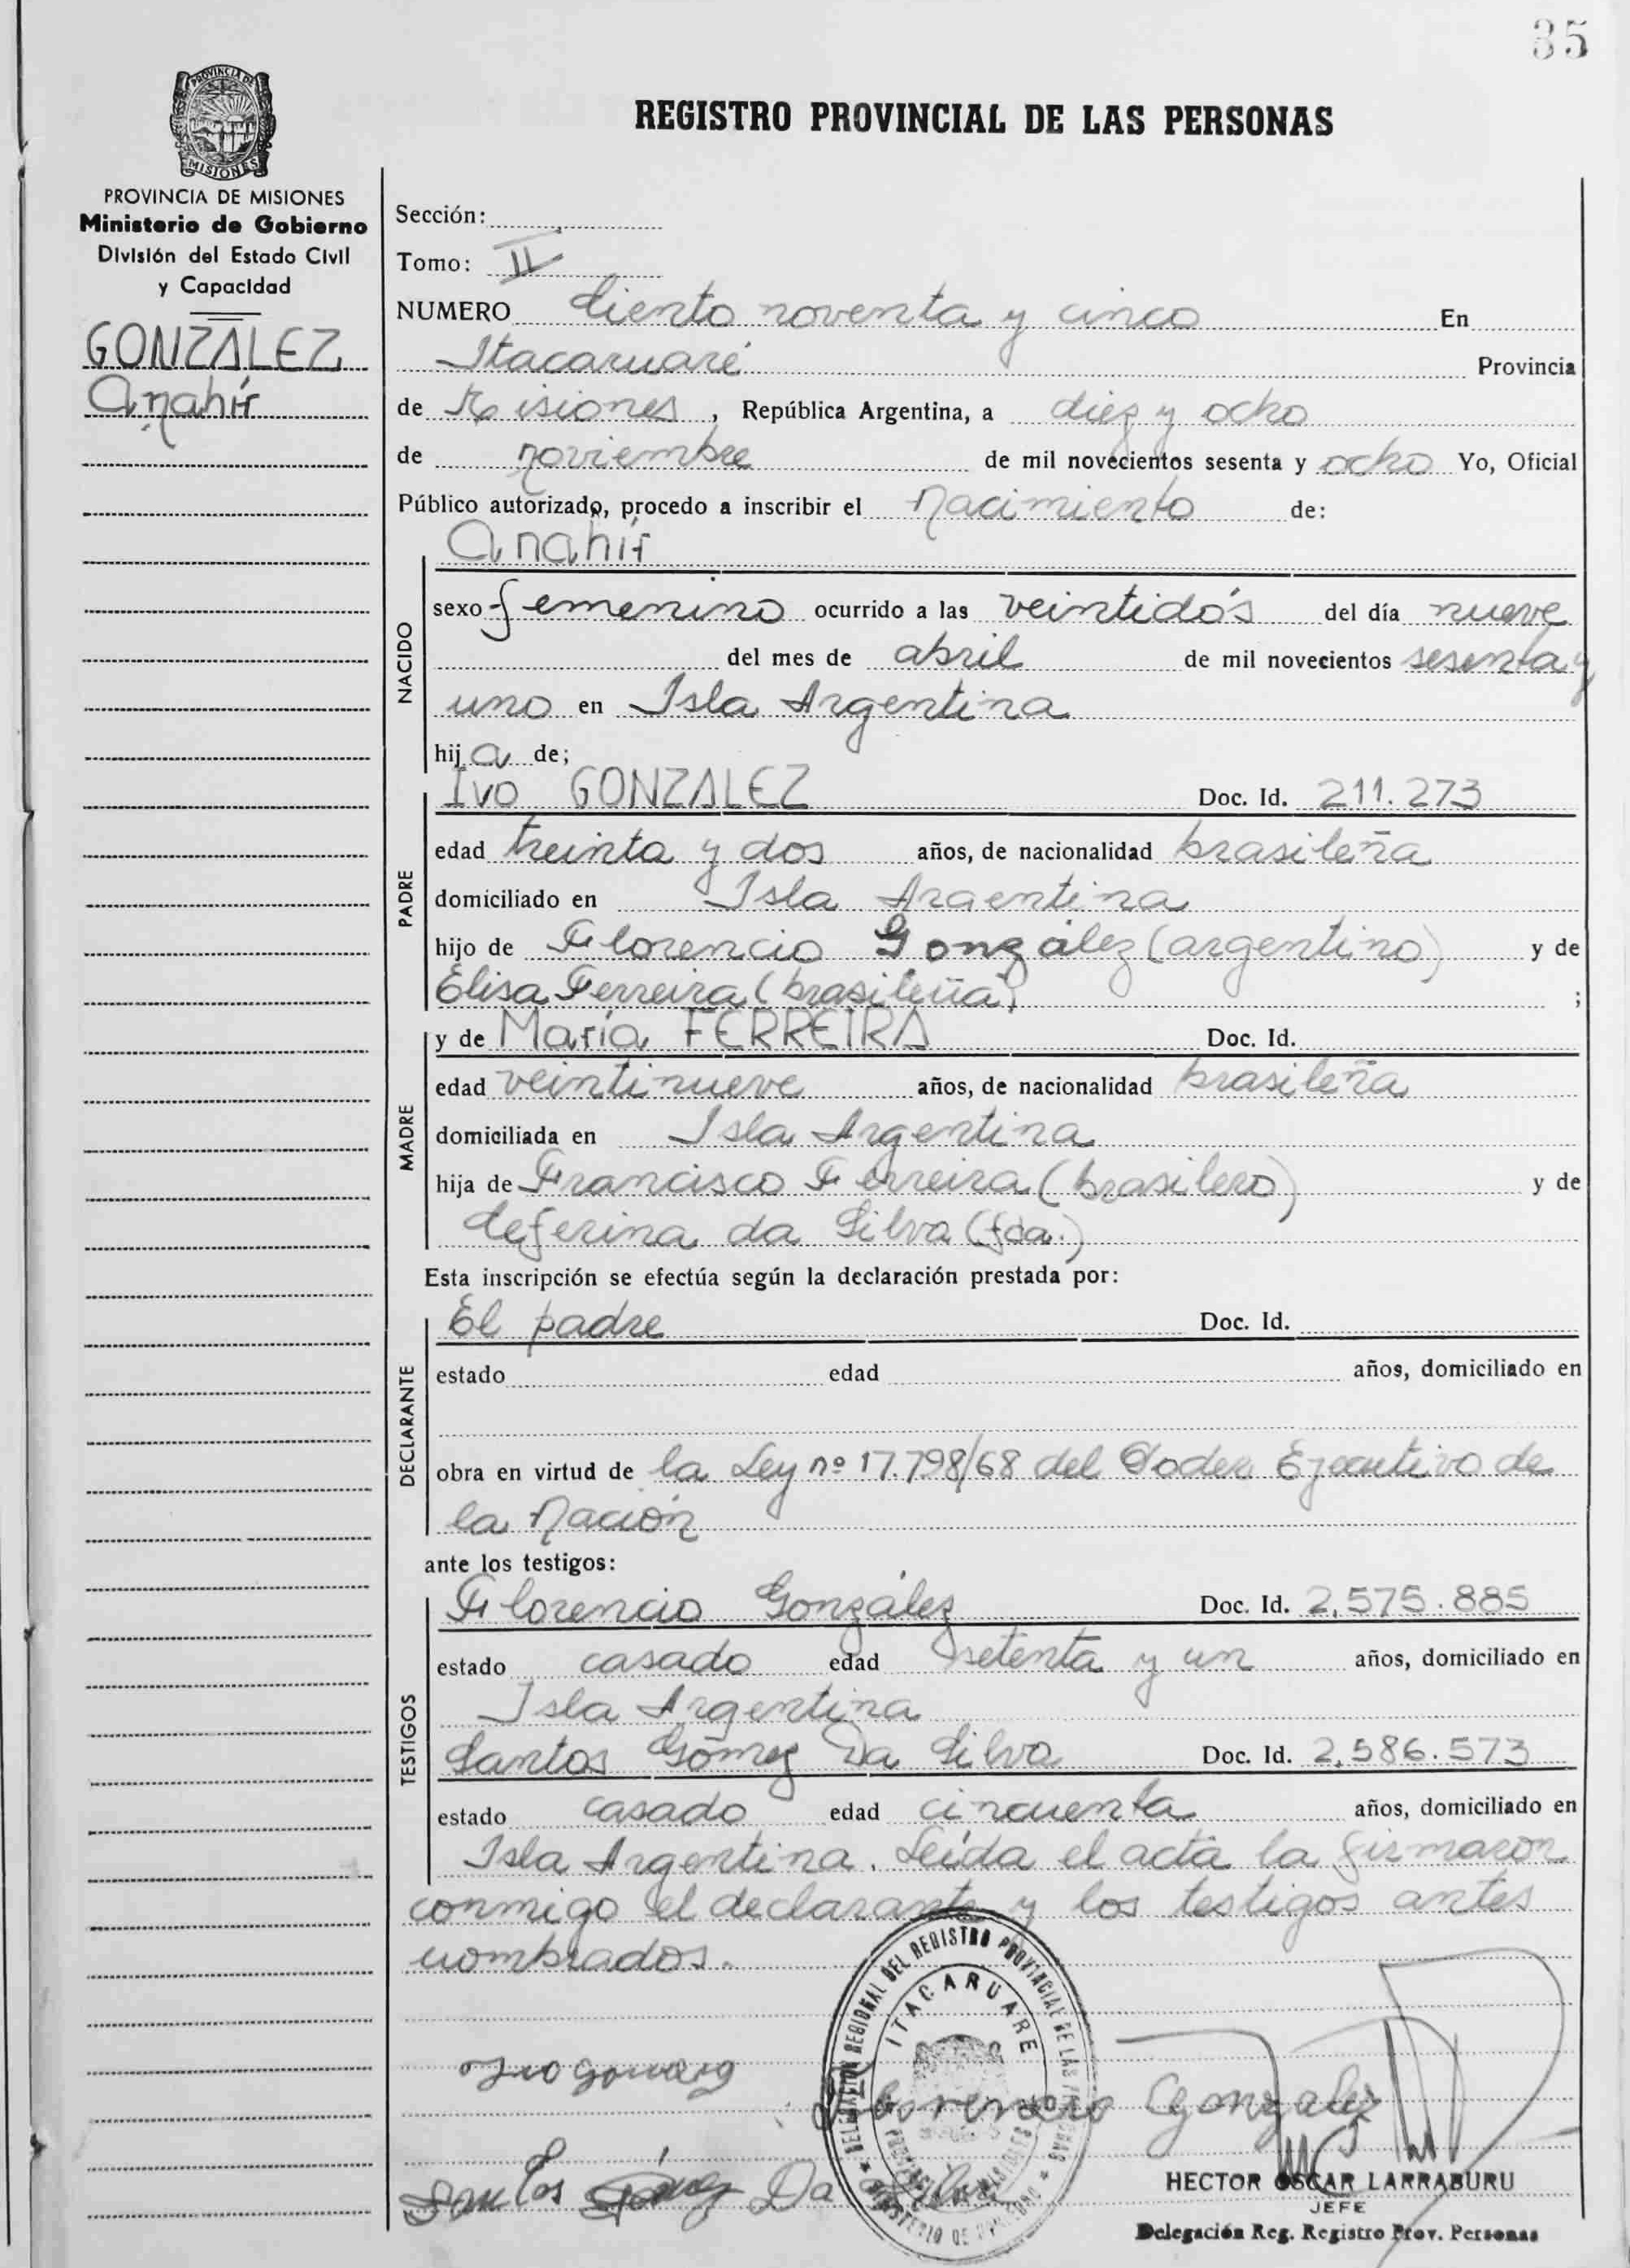 35
PROVINCIA DE
MISIONES
REGISTRO PROVINCIAL DE LAS PERSONAS
PROVINCIA DE MISIONES
Ministerio de Gobierno
División del Estado Civil
y Capacidad
GONZALEZ
Anahír
Sección:
Tomo: II
NUMERO Ciento noventa y cinco En
Itacaruaré Provincia
de Misiones, República Argentina, a diez y ocho
de noviembre de mil novecientos sesenta y ocho Yo, Oficial
Público autorizado, procedo a inscribir el Nacimiento de:
Anahír
NACIDO
sexo femenino ocurrido a las veintidós del día nueve
del mes de abril de mil novecientos sesenta y
uno en Isla Argentina
hija de;
PADRE
Ivo GONZALEZ Doc. Id. 211.273
edad treinta y dos años, de nacionalidad brasileña
domiciliado en Isla Argentina
hijo de Florencio González (argentino) y de
Elisa Ferreira (brasileña) ;
MADRE
y de María FERREIRA Doc. Id.
edad veintinueve años, de nacionalidad brasileña
domiciliada en Isla Argentina
hija de Francisco Ferreira (brasilero) y de
Ceferina da Silva (fda.)
Esta inscripción se efectúa según la declaración prestada por:
DECLARANTE
El padre Doc. Id.
estado edad años, domiciliado en
obra en virtud de la Ley nº 17.798/68 del Poder Ejecutivo de
la Nación
ante los testigos:
TESTIGOS
Florencio González Doc. Id. 2,575.885
estado casado edad setenta y un años, domiciliado en
Isla Argentina
Santos Gómez Da Silva Doc. Id. 2,586.573
estado casado edad cincuenta años, domiciliado en
Isla Argentina. Leída el acta la firmaron
conmigo el declarante y los testigos antes
nombrados.
DELEGACION REGIONAL DEL REGISTRO PROVINCIAL DE LAS PERSONAS
ITACARUARE
MINISTERIO DE GOBIERNO
Ivo Gonzalez
Florencio Gonzalez
Santos Gómez Da Silva
HECTOR OSCAR LARRABURU
JEFE
Delegación Reg. Registro Prov. Personas